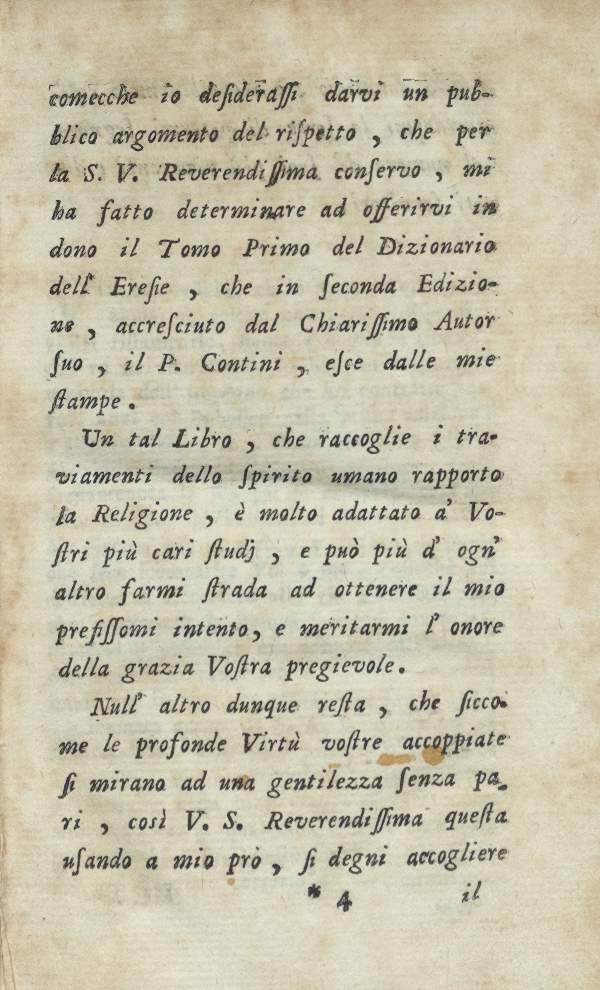 comecche io deſideraſſi darvi un pub-
blico argomento del riſpetto , che per
la S. V. Reverendiſſima conſervo , mi
ha fatto determinare ad offerirvi in
dono il Tomo Primo del Dizionario
dell' Ereſie , che in ſeconda Edizio-
ne , accreſciuto dal Chiariſſimo Autor
ſuo , il P. Contini , eſce dalle mie
ſtampe .
Un tal Libro , che raccoglie i tra-
viamenti dello ſpirito umano rapporto
la Religione , è molto adattato a' Vo-
ſtri più cari ſtudj , e può più d' ogn'
altro farmi ſtrada ad ottenere il mio
prefiſſomi intento, e meritarmi l' onore
della grazia Voſtra pregievole .
Null' altro dunque reſta , che ſicco-
me le profonde Virtù voſtre accoppiate
ſi mirano ad una gentilezza ſenza pa-
ri , così V. S. Reverendiſſima queſta
uſando a mio prò , ſi degni accogliere
* 4 il